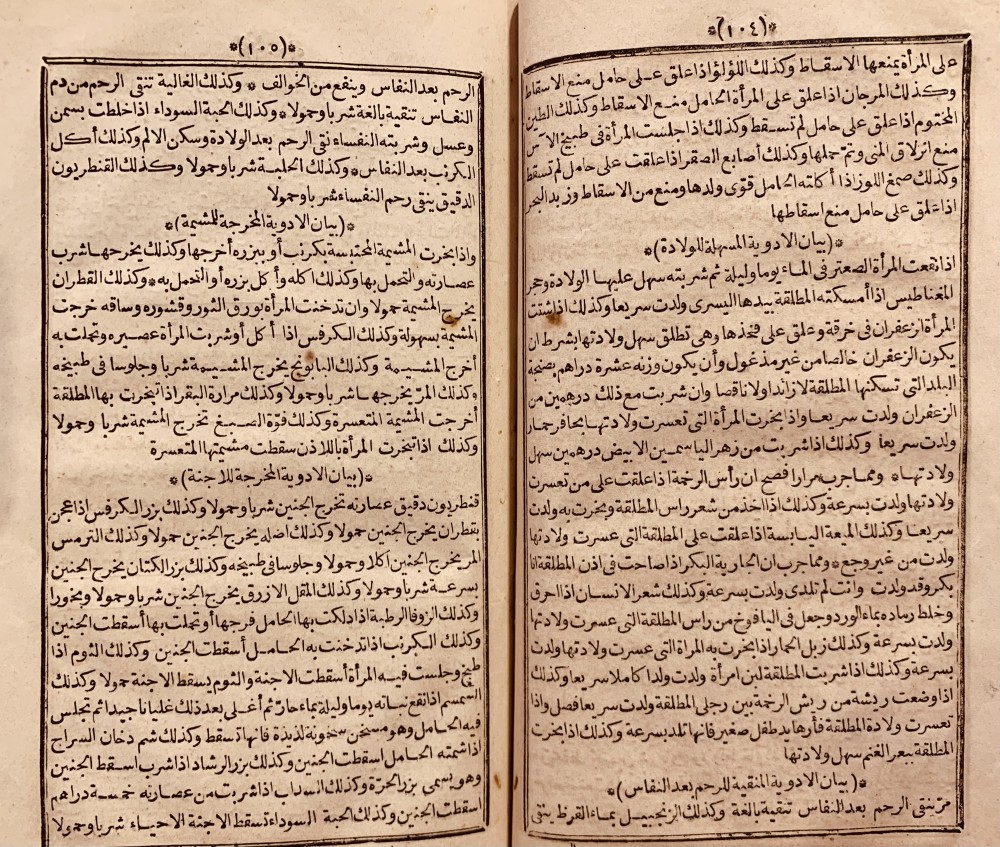 *(١٠٤)*
على المرأة يمنعها الاسقاط وكذلك اللؤلؤ اذا علق على حامل منع الاسقاط
وكذلك المرجان اذا علق على المرأة الحامل منع الاسقاط وكذلك الطين
المختوم اذا علق على حامل لم تسقط وكذلك اذا جلست المرأة فى طبيخ الآس
منع انزلاق المنى وتم حملها وكذلك أصابع الصقر اذا علقت على حامل لم تسقط
وكذلك صمغ اللوز اذا أكلته الحامل قوى ولدها ومنع من الاسقاط وزبد البحر
اذا علق على حامل منع اسقاطها
*(بيان الادوية المسهلة للولادة)*
اذا نقعت المرأة الصعتر فى الماء يوما وليلة ثم شربته سهل عليها الولادة وحجر
المغناطيس اذا أمسكته المطلقة بيدها اليسرى ولدت سريعا وكذلك اذا شئت
المرأة الزعفران فى خرقة وعلق على فخذها وهى تطلق سهل ولادتها بشرط ان
يكون الزعفران خالصا من غير مدغول وأن يكون وزنه عشرة دراهم بصنجة
البلد التى تسكنها المطلقة لا زائدا ولا ناقصا وان شربت مع ذلك درهمين من
الزعفران ولدت سريعا واذا بخرت المرأة التى تعسرت ولادتها بحافر حمار
ولدت سريعا وكذلك اذا شربت من زهر الياسمين الابيض درهمين سهل
ولادتها* ومما جرب مرارا فصح ان رأس الرخمة اذا علقت على من تعسرت
ولادتها ولدت بسرعة وكذلك اذا اخذ من شعر راس المطلقة وبخرت به ولدت
سريعا وكذلك الميعة اليابسة اذا علقت على المطلقة التى عسرت ولادتها
ولدت من غير وجع* ومما جرب ان الجارية البكر اذا صاحت فى اذن المطلقة انا
بكر وقد ولدت وانت لم تلدى ولدت بسرعة وكذلك شعر الانسان اذا احرق
وخلط رماده بماء الورد وجعل فى اليافوخ من راس المطلقة التى عسرت ولادتها
ولدت بسرعة وكذلك زبل الحمار اذا بخرت به المرأة التى عسرت ولادتها ولدت
بسرعة وكذلك اذا شربت المطلقة لبن امرأة ولدت ولدا كاملا سريعا وكذلك
اذا وضعت ريشة من ريش الرخمة بين رجلى المطلقة ولدت سريعا فصل واذا
تعسرت ولادة المطلقة فأرها يد طفل صغير فانها تلد بسرعة وكذلك اذا بخرت
المطلقة ببعر الغنم سهل ولادتها
*(بيان الادوية المنقية للرحم بعد النفاس)*
مر ينقى الرحم بعد النفاس تنقية بالغة وكذلك الزنجبيل بماء القرظ ينقى
*(١٠٥)*
الرحم بعد النفاس وينفع من الخوالف* وكذلك الغالية تنقى الرحم من دم
النفاس تنقية بالغة شربا وحمولا* وكذلك الحبة السوداء اذا خلطت بسمن
وعسل وشربته النفساء نقى الرحم بعد الولادة وسكن الالم وكذلك أكل
الكرنب بعد النفاس* وكذلك الحلبة شربا وحمولا وكذلك القنطريون
الدقيق ينقى رحم النفساء شربا وحمولا
*(بيان الادوية المخرجة للمشيمة)*
واذا بخرت المشيمة المحتبسة بكرنب أو ببزره أخرجها وكذلك يخرجها شرب
عصارته والتحمل بها وكذلك اكله وأكل بزره أو التحمل به* وكذلك القطران
يخرج المشيمة حمولا وان تدخنت المرأة بورق الثور وقشوره وساقه خرجت
المشيمة بسهولة وكذلك الكرفس اذا أكل أو شربت المرأة عصيره وتحملت به
أخرج المشيمة وكذلك البانونج يخرج المشيمة شربا وجلوسا فى طبيخه
وكذلك المر يخرجها شربا وحمولا وكذلك مرارة البقر اذا تبخرت بها المطلقة
أخرجت المشيمة المتعسرة وكذلك فوة الصبغ تخرج المشيمة شربا وحمولا
وكذلك اذا تبخرت المرأة باللاذن سقطت مشيمتها المتعسرة
*(بيان الادوية المخرجة للاجنة)*
قنطريون دقيق عصارته تخرج الجنين شربا وحمولا وكذلك بزر الكرفس اذا عجن
بقطران يخرج الجنين حمولا وكذلك اصله يخرج الجنين حمولا وكذلك الترمس
المر يخرج الجنين أكلا وحمولا وجلوسا فى طبيخه وكذلك بزر الكتان يخرج الجنين
بسرعة شربا وحمولا وكذلك المقل الازرق يخرج الجنين شربا وحمولا وبخورا
وكذلك الزوفا الرطبة اذا دلكت بها الحامل فرجها أو تحملت بها أسقطت الجنين
وكذلك الكرنب اذا تدخنت به الحامل أسقطت الجنين وكذلك الثوم اذا
طبخ وجلست فيه المرأة أسقطت الاجنة والثوم يسقط الاجنة حمولا وكذلك
السمسم اذا نقع نباته يوما وليلة بماء حار ثم أغلى بعد ذلك غليانا جيدا ثم تجلس
فيه الحامل وهو مسخن سخونة لذيذة فانها تسقط وكذلك شم دخان السراج
اذا شمته الحامل اسقطت الجنين وكذلك بزر الرشاد اذا شرب اسقط الجنين
وهو يسمى بزر الحرة وكذلك السداب اذا شربت من عصارته خمسة دراهم
اسقطت الجنين وكذلك الحبة السوداء تسقط الاجنة الاحياء شربا وحمولا